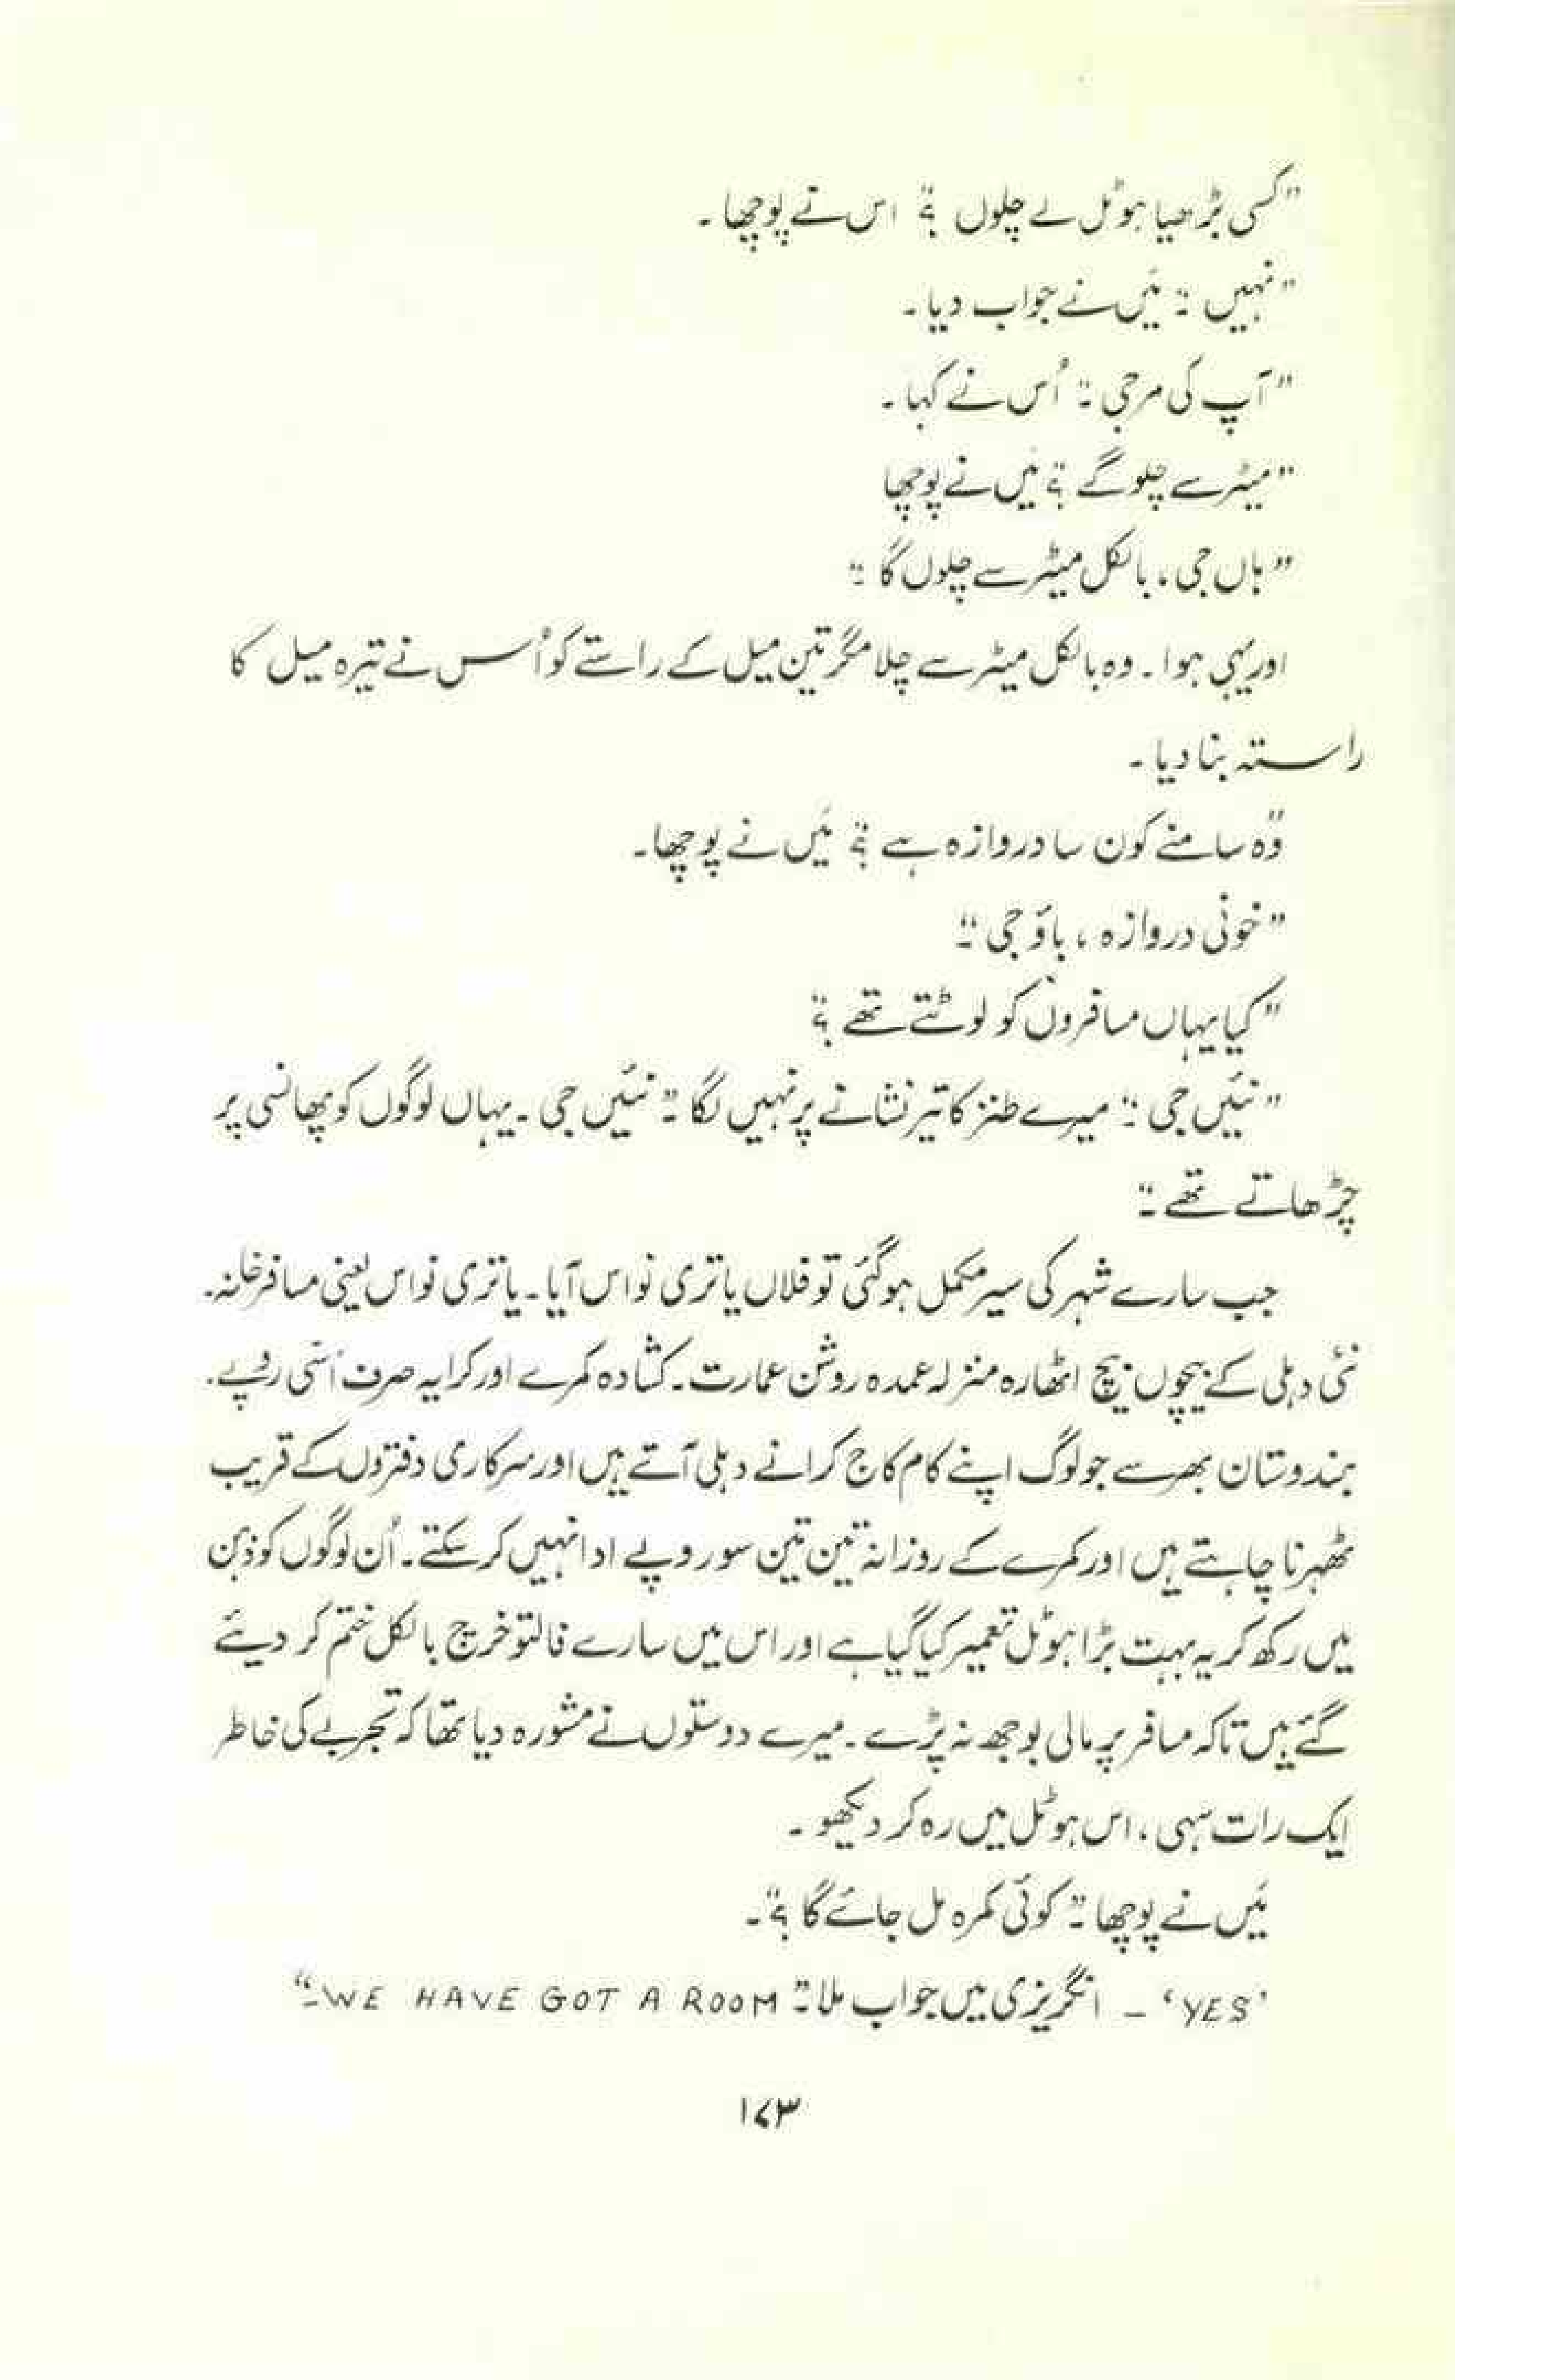 "کسی بڑھیا ہوٹل لے چلوں؟" اس نے پوچھا۔
"نہیں۔" مَیں نے جواب دیا۔
"آپ کی مرجی۔" اُس نے کہا۔
"میٹر سے چلو گے؟" مَیں نے پوچھا
"ہاں جی، بالکل میٹر سے چلوں گا۔"
اور یہی ہوا۔ وہ بالکل میٹر سے چلا مگر تین میل کے راستے کو اُس نے تیرہ میل کا
راستہ بنا دیا۔
"وہ سامنے کون سا دروازہ ہے؟" مَیں نے پوچھا۔
"خونی دروازہ، باؤ جی۔"
"کیا یہاں مسافروں کو لوٹتے تھے؟"
"نئیں جی۔" میرے طنز کا تیر نشانے پر نہیں لگا۔ "نئیں جی۔ یہاں لوگوں کو پھانسی پر
چڑھاتے تھے۔"
جب سارے شہر کی سیر مکمل ہوگئی تو فلاں یاتری نواس آیا۔ یاتری نواس یعنی مسافر خانہ۔
نئی دہلی کے بیچوں بیچ اٹھارہ منزلہ عمدہ روشن عمارت۔ کشادہ کمرے اور کرایہ صرف اَسّی روپے۔
ہندوستان بھر سے جو لوگ اپنے کام کاج کرانے دہلی آتے ہیں اور سرکاری دفتروں کے قریب
ٹھہرنا چاہتے ہیں اور کمرے کے روزانہ تین تین سو روپے ادا نہیں کر سکتے۔ اُن لوگوں کو ذہن
میں رکھ کر یہ بہت بڑا ہوٹل تعمیر کیا گیا ہے اور اس میں سارے فالتو خرچ بالکل ختم کر دیئے
گئے ہیں تاکہ مسافر پر مالی بوجھ نہ پڑے۔ میرے دوستوں نے مشورہ دیا تھا کہ تجربے کی خاطر
ایک رات سہی، اس ہوٹل میں رہ کر دیکھو۔
مَیں نے پوچھا۔ "کوئی کمرہ مل جائے گا؟"۔
'YES' – انگریزی میں جواب ملا۔ "WE HAVE GOT A ROOM۔"
۱۷۳